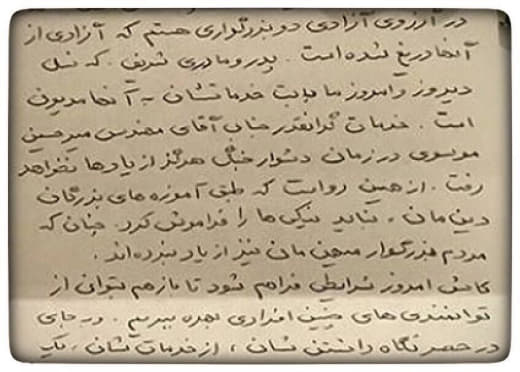 در آرزوی آزادی دو بزرگواری هستم که آزادی از
آنها دریغ شده است. پدر و مادری شریف. که نسل
دیروز و امروز ما بابت خدماتشان به آنها مدیون
است. خدمات گرانقدر جناب آقای مهندس میرحسین
موسوی در زمان دشوار جنگ هرگز از یادها نخواهد
رفت. از همین رو است که طبق آموزه های بزرگان
دین مان، نباید نیکی ها را فراموش کرد. چنان که
مردم قدرگزار میهن مان نیز از یاد نبرده اند.
کاش امروز شرایطی فراهم شود تا باز هم بتوان از
توانمندی های چنین افرادی بهره ببریم. و به جای
در حصر نگاه داشتن شان، از خدمات شان، یک